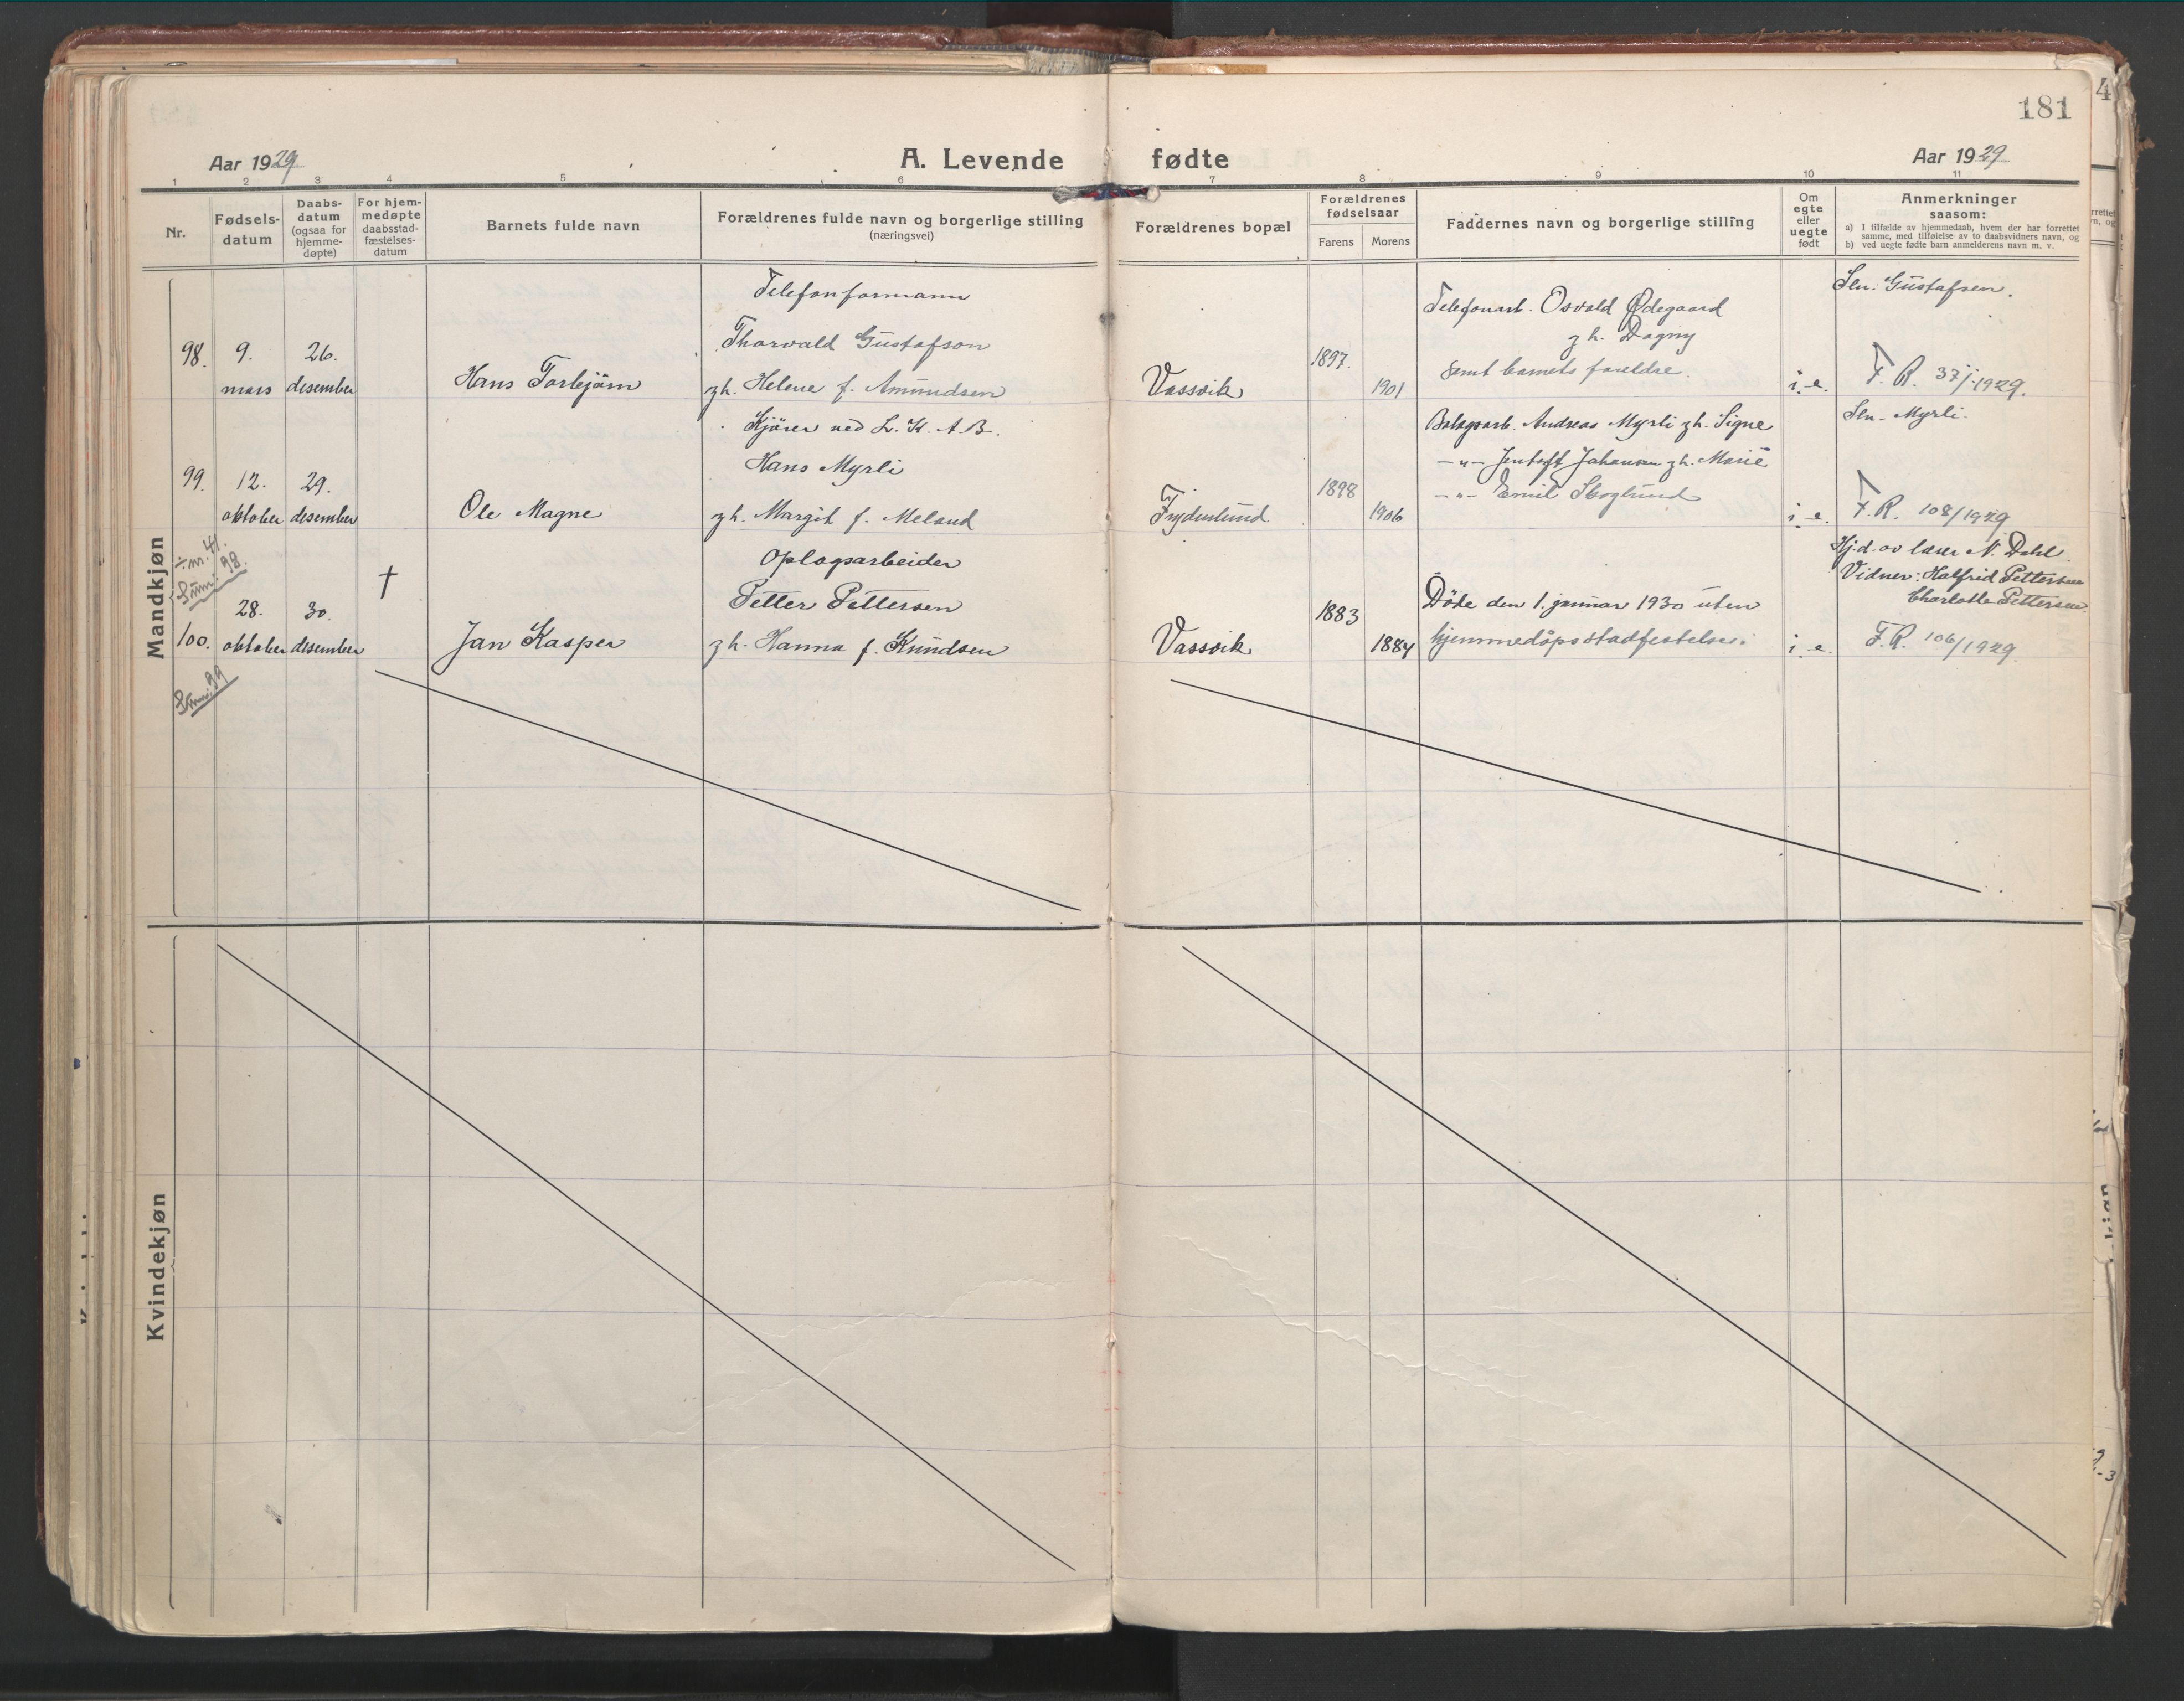 181
Aar 1929
A. Levende fødte
Aar 1929
1 2 3 4 5 6 7 8 9 10 11
Nr.
Fødsels-
datum
Daabs-
datum
(ogsaa for
hjemme-
døpte)
For hjem-
medøpte
daabsstad-
fæstelses-
datum
Barnets fulde navn
Forældrenes fulde navn og borgerlige stilling
(næringsvei)
Forældrenes bopæl
Forældrenes
fødselsaar
Farens Morens
Faddernes navn og borgerlige stilling
Om
egte
eller
uegte
født
Anmerkninger
saasom:
a) I tilfælde av hjemmedaab, hvem der har forrettet
samme, med tilføielse av to daabsvidners navn, og
b) ved uegte fødte barn anmelderens navn m. v.
Mandkjøn
98.
9.
mars
26.
desember
Hans Torbjörn
Telefonformann
Thorvald Gustafson
g h. Helene f. Amundsen
Vassvik
1897.
1901
Telefonarb. Osvald Ødegaard
g h. Dagny
samt barnets foreldre.
i. e.
Sln. Gustafsen.
F. R. 37/1929.
99.
12.
oktober
29.
desember
Ole Magne
Kjörer ved L. K. A. B.
Hans Myrli
g h. Margit f. Meland
Frydenlund
1898
1906
Bolagsarb. Andreas Myrli g h. Signe
-"- Jentoft Johansen g h. Marie
-"- Emil Skoglund
i. e.
Sln. Myrli.
F. R. 108/1929
÷ nr. 41.
Sum: 98.
100.
28.
oktober
30.
desember
†
Jan Kasper
Oplagsarbeider
Petter Pettersen
g h. Hanna f. Knudsen
Vassvik
1883
1884
Döde den 1. januar 1930 uten
hjemmedöpsstadfestelse.
i. e.
Hj.d. av lærer N. Dahl
Vidner: Halfrid Pettersen
Charlotte Pettersen
F. R. 106/1929.
Sum: 99
Kvindekjøn